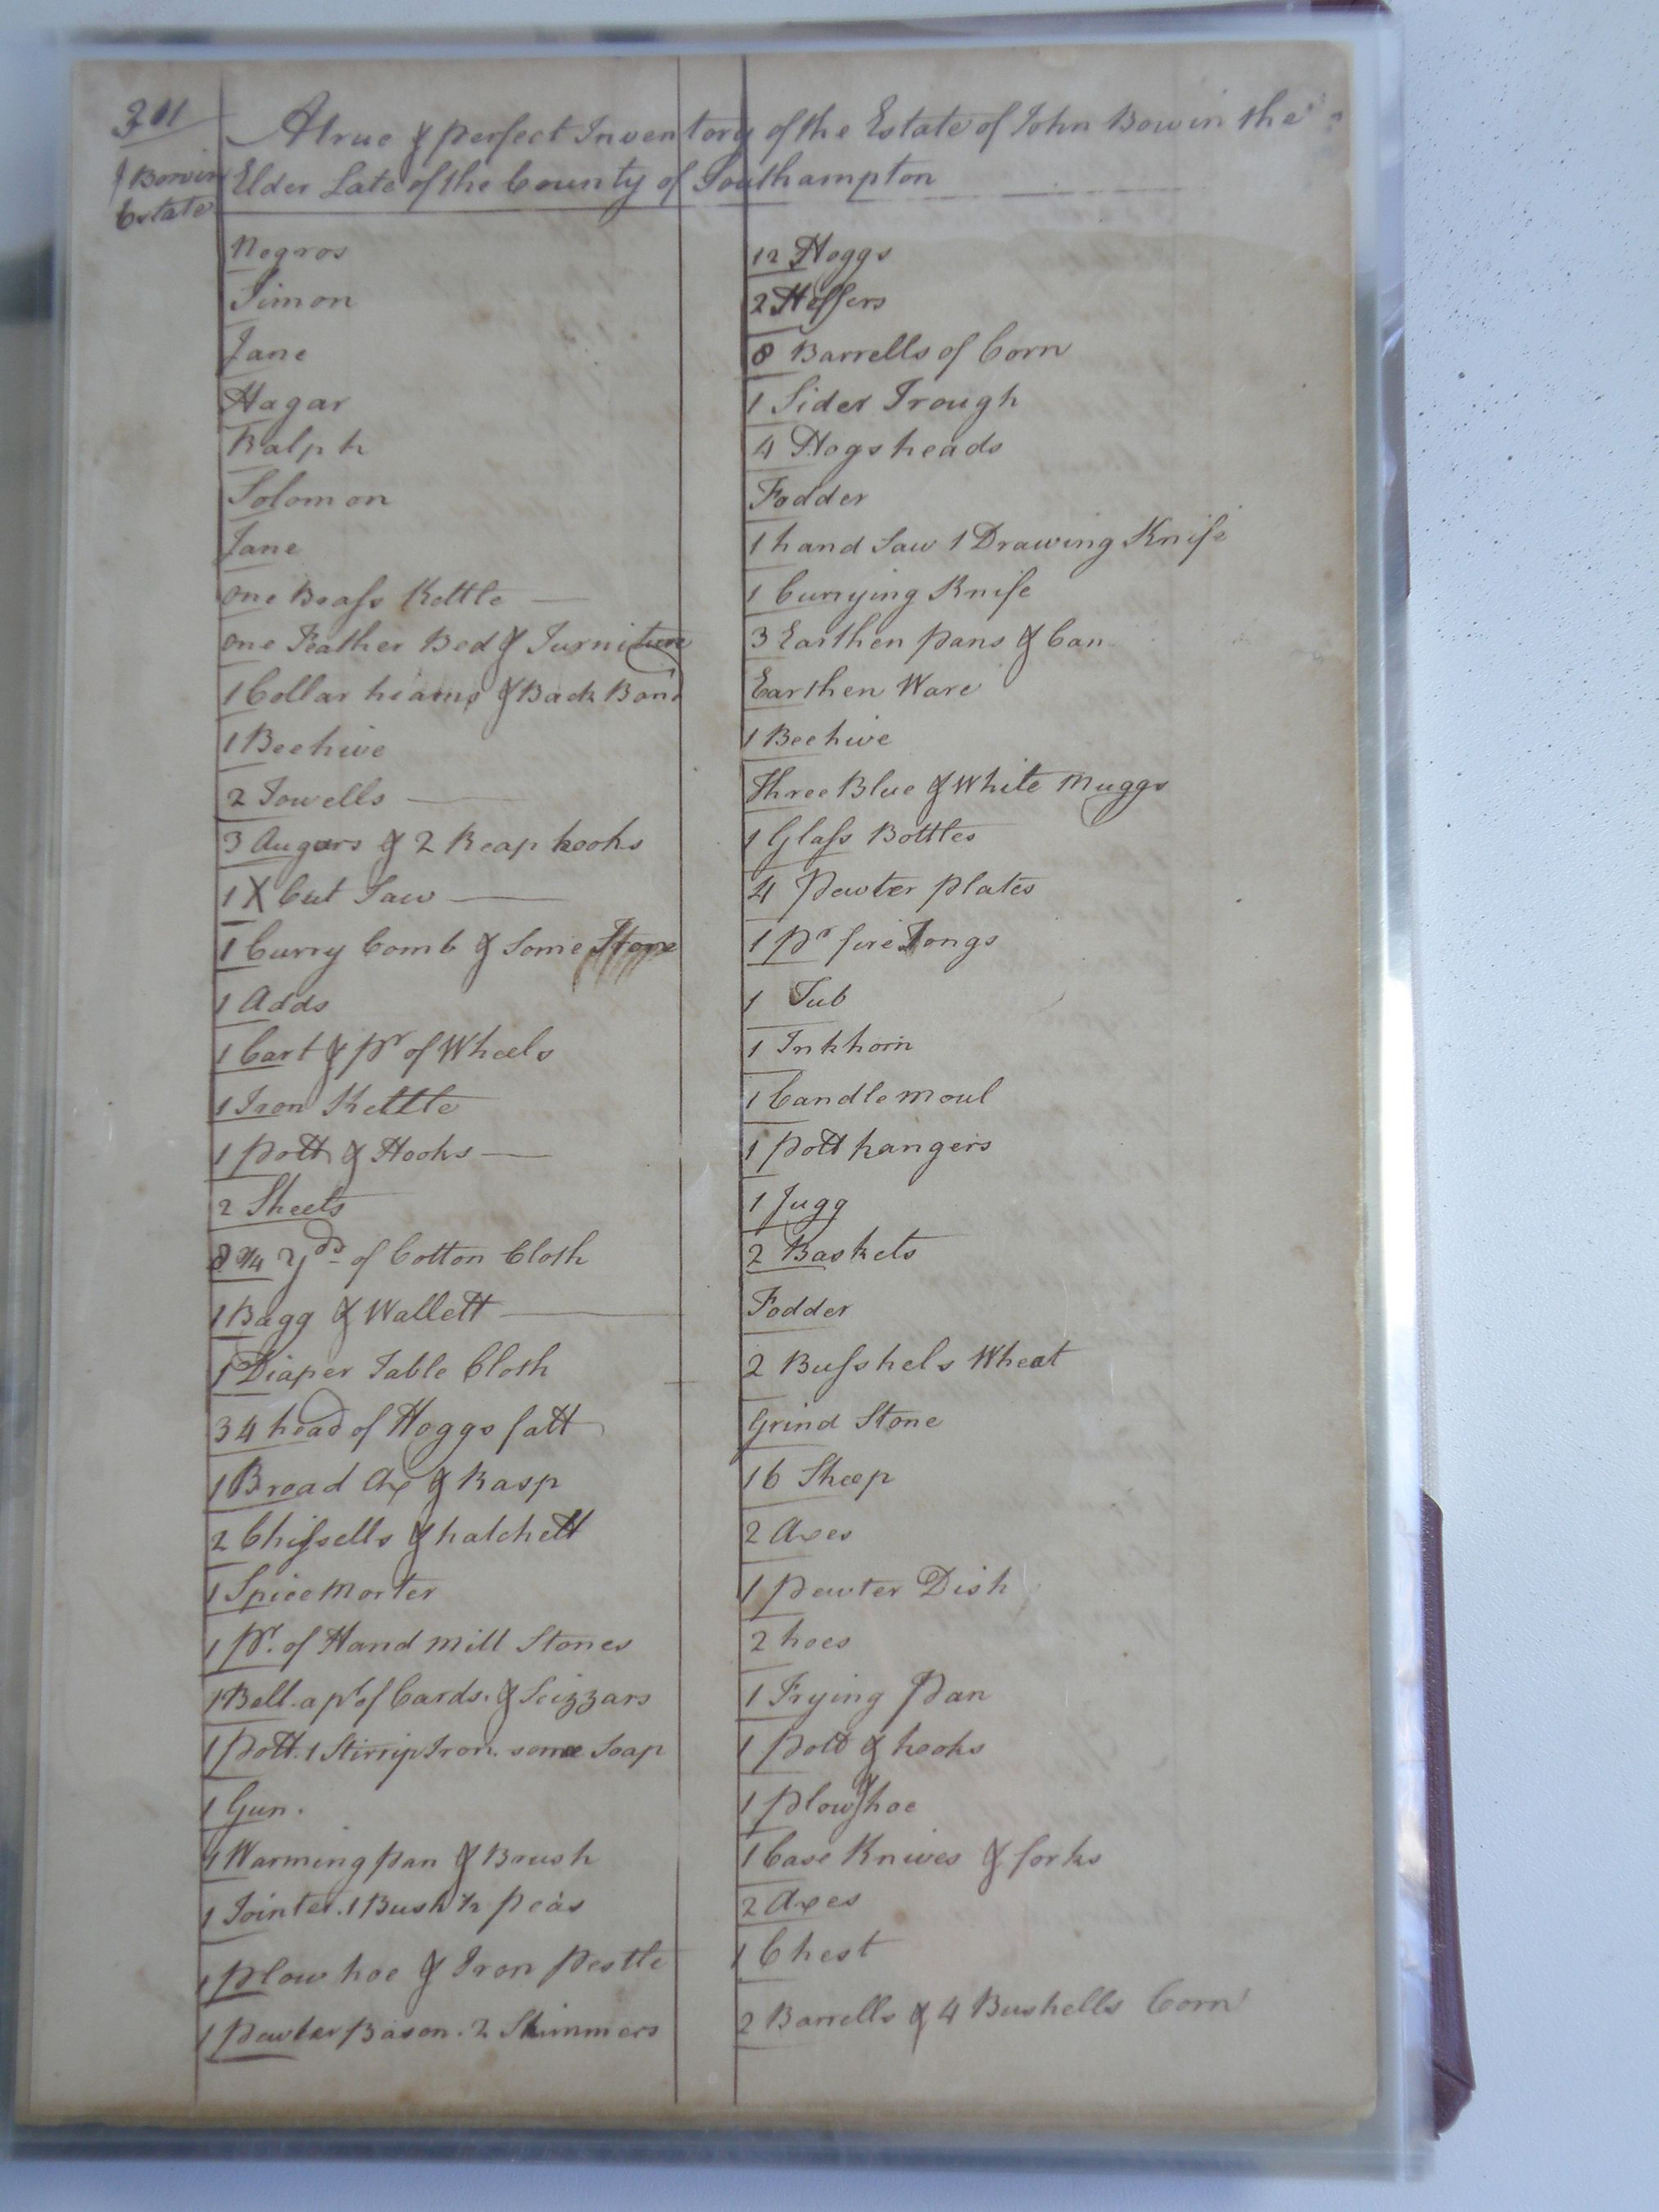 301
J Bowin
Estate
A true & perfect Inventory of the Estate of John Bowin the
Elder Late of the County of Southampton
Negros
Simon
Jane
Hagar
Ralph
Solomon
Jane
one Brass Kettle
one Feather Bed & Furniture
1 Collar heams & Back Band
1 Beehive
2 Towells
3 Augers & 2 Reap hooks
1 X Cut Saw
1 Curry Comb & Some
1 Adds
1 Cart & pr of Wheels
1 Iron Kettle
1 pott & Hooks
2 Sheets
8 3/4 Yds of Cotton Cloth
1 Bagg & Wallett
1 Diaper Table Cloth
34 head of Hoggs fatt
1 Broad Axe & Rasp
2 Chissells & hatchett
1 Spice Morter
1 pr. of Hand mill Stones
1 Bell. a pr of Cards. & Scizzars
1 Pott. 1 Stirrip Iron. some Soap
1 Gun.
1 Warming pan & Brush
1 Jointer. 1 Bush 1/2 peas
1 plow hoe & Iron Pestle
1 Pewter Bason. 2 Skimmers
12 Hoggs
2 Heffers
8 Barrells of Corn
1 Sider Trough
4 Hogsheads
Fodder
1 hand Saw 1 Drawing Knife
1 Currying Knife
3 Earthen pans & Can
Earthen Ware
1 Beehive
Three Blue & White Muggs
1 Glass Bottles
4 Pewter plates
1 Pr fire Tongs
1 Tub
1 Inkhorn
1 Candle moul
1 pott hangers
1 Jugg
2 Baskets
Fodder
2 Busshels Wheat
Grind Stone
16 Sheep
2 Axes
1 pewter Dish
2 hoes
1 Frying Pan
1 pott & hooks
1 plow & hoe
1 Case Knives & forks
2 Axes
1 Chest
2 Barrells & 4 Bushells Corn